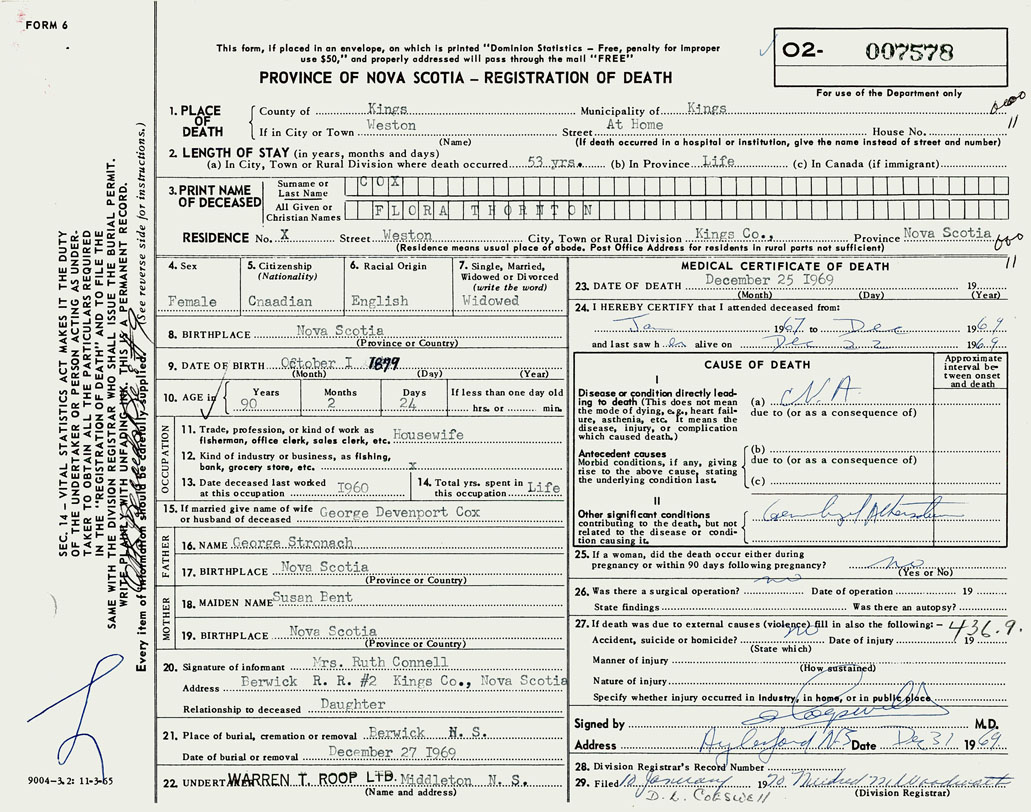 FORM 6
This form, if placed in an envelope, on which is printed "Dominion Statistics – Free, penalty for improper
use $50," and properly addressed will pass through the mail "FREE"
PROVINCE OF NOVA SCOTIA – REGISTRATION OF DEATH
O2- 007578
For use of the Department only
1. PLACE OF DEATH
County of Kings Municipality of Kings
If in City or Town Weston Street At Home House No.
(Name) (If death occurred in a hospital or institution, give the name instead of street and number)
2. LENGTH OF STAY (in years, months and days)
(a) In City, Town or Rural Division where death occurred 53 yrs. (b) In Province Life (c) In Canada (if immigrant)
3. PRINT NAME OF DECEASED
Surname or Last Name COX
All Given or Christian Names FLORA THORNTON
RESIDENCE No. X Street Weston City, Town or Rural Division Kings Co., Province Nova Scotia
(Residence means usual place of abode. Post Office Address for residents in rural parts not sufficient)
4. Sex
Female
5. Citizenship
(Nationality)
Cnaadian
6. Racial Origin
English
7. Single, Married,
Widowed or Divorced
(write the word)
Widowed
8. BIRTHPLACE Nova Scotia
(Province or Country)
9. DATE OF BIRTH October I 1879
(Month) (Day) (Year)
10. AGE in
Years Months Days If less than one day old
90 2 24 hrs. or min.
OCCUPATION
11. Trade, profession, or kind of work as
fisherman, office clerk, sales clerk, etc. Housewife
12. Kind of industry or business, as fishing,
bank, grocery store, etc. x
13. Date deceased last worked
at this occupation I960
14. Total yrs. spent in
this occupation Life
15. If married give name of wife
or husband of deceased George Devenport Cox
FATHER
16. NAME George Stronach
17. BIRTHPLACE Nova Scotia
(Province or Country)
MOTHER
18. MAIDEN NAME Susan Bent
19. BIRTHPLACE Nova Scotia
(Province or Country)
20. Signature of informant Mrs. Ruth Connell
Address Berwick R. R. #2 Kings Co., Nova Scotia
Relationship to deceased Daughter
21. Place of burial, cremation or removal Berwick N. S.
Date of burial or removal December 27 I969
22. UNDERT WARREN T. ROOP LTD. Middleton N. S.
(Name and address)
MEDICAL CERTIFICATE OF DEATH
23. DATE OF DEATH December 25 I969 19
(Month) (Day) (Year)
24. I HEREBY CERTIFY that I attended deceased from:
Jan 1967 to Dec 1969
and last saw h er alive on Dec 22 1969
CAUSE OF DEATH
Approximate
interval be-
tween onset
and death
I
Disease or condition directly lead-
ing to death (This does not mean
the mode of dying, e.g., heart fail-
ure, asthenia, etc. It means the
disease, injury, or complication
which caused death.)
(a) C.V.A.
due to (or as a consequence of)
Antecedent causes
Morbid conditions, if any, giving
rise to the above cause, stating
the underlying condition last.
(b)
due to (or as a consequence of)
(c)
II
Other significant conditions
contributing to the death, but not
related to the disease or condi-
tion causing it.
25. If a woman, did the death occur either during
pregnancy or within 90 days following pregnancy? no
(Yes or No)
26. Was there a surgical operation? no Date of operation 19
State findings Was there an autopsy?
27. If death was due to external causes (violence) fill in also the following:– 436.9.
Accident, suicide or homicide? no Date of injury 19
(State which)
Manner of injury
(How sustained)
Nature of injury
Specify whether injury occurred in industry, in home, or in public place
Signed by M.D.
Address Aylesford NS Date Dec 31 1969
28. Division Registrar's Record Number
29. Filed 10 January 1970
(Division Registrar)
D. L. COGSWELL
SEC. 14 – VITAL STATISTICS ACT MAKES IT THE DUTY
OF THE UNDERTAKER OR PERSON ACTING AS UNDER-
TAKER TO OBTAIN ALL THE PARTICULARS REQUIRED
IN THE "REGISTRATION OF DEATH" AND TO FILE THE
SAME WITH THE DIVISION REGISTRAR WHO SHALL ISSUE THE BURIAL PERMIT.
WRITE PLAINLY WITH UNFADING INK. THIS IS A PERMANENT RECORD.
Every item of information should be carefully supplied. (See reverse side for instructions.)
9004-3.2: 11-3-65